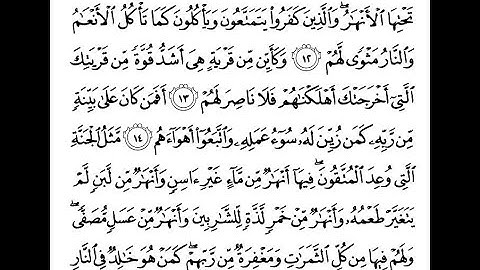 تَحْتِهَا ٱلْأَنْهَٰرُ ۖ وَٱلَّذِينَ كَفَرُوا۟ يَتَمَتَّعُونَ وَيَأْكُلُونَ كَمَا تَأْكُلُ ٱلْأَنْعَٰمُ
وَٱلنَّارُ مَثْوًى لَّهُمْ ١٢ وَكَأَيِّن مِّن قَرْيَةٍ هِىَ أَشَدُّ قُوَّةً مِّن قَرْيَتِكَ
ٱلَّتِىٓ أَخْرَجَتْكَ أَهْلَكْنَٰهُمْ فَلَا نَاصِرَ لَهُمْ ١٣ أَفَمَن كَانَ عَلَىٰ بَيِّنَةٍ
مِّن رَّبِّهِۦ كَمَن زُيِّنَ لَهُۥ سُوٓءُ عَمَلِهِۦ وَٱتَّبَعُوٓا۟ أَهْوَآءَهُم ١٤ مَّثَلُ ٱلْجَنَّةِ
ٱلَّتِى وُعِدَ ٱلْمُتَّقُونَ ۖ فِيهَآ أَنْهَٰرٌ مِّن مَّآءٍ غَيْرِ ءَاسِنٍ وَأَنْهَٰرٌ مِّن لَّبَنٍ لَّمْ
يَتَغَيَّرْ طَعْمُهُۥ وَأَنْهَٰرٌ مِّنْ خَمْرٍ لَّذَّةٍ لِّلشَّٰرِبِينَ وَأَنْهَٰرٌ مِّنْ عَسَلٍ مُّصَفًّى ۖ
وَلَهُمْ فِيهَا مِن كُلِّ ٱلثَّمَرَٰتِ وَمَغْفِرَةٌ مِّن رَّبِّهِمْ ۖ كَمَنْ هُوَ خَٰلِدٌ فِى ٱلنَّارِ